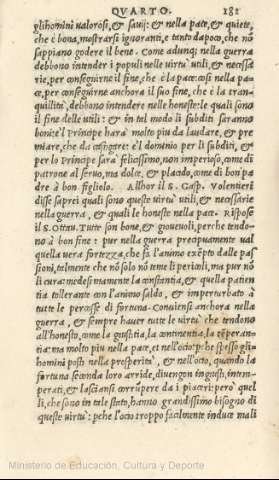 QVARTO. 181
glihomini valorosi, & sauij: & nella pace, & quiete,
che è bona, mostrarsi ignoranti, e tanto dapoco, che nõ
sappiano godere il bene. Come adunq; nella guerra
debbono intender i populi nelle virtu' utili, & necessa
rie, per cõseguirne il fine, che è la pace: cosi nella pa=
ce, per cõseguirne anchora il suo fine, che è la tran=
quillitu', debbono intendere nelle honeste: le quali sono
il fine delle utili: & in tal modo li subditi saranno
boni: e'l Principe hara' molto piu da laudare, & pre
miare, che da castigare: e'l dominio per li subditi, &
per lo Principe sara' felicissimo, non imperioso, come di
patrone al seruo, ma dolce, & placido, come di bon pa
dre à bon figliolo. Allhor il S. Gasp. Volentieri
disse saprei quali sono queste virtu' utili, & necessarie
nella guerra, & quali le honeste nella pace. Rispose
il S. Ottau. Tutte son bone, & gioueuoli, perche tendo=
no à bon fine: pur nella guerra precipuamente ual
quella uera fortezza, che fa l'animo exẽpto dalle pas
sioni, telmente che nõ solo nõ teme li pericoli, ma pur nõ
li cura: medesimamente la constantia, & quella patien
tia tollerante con l'animo saldo, & imperturbato à
tutte le percosse di fortuna. Conuiensi anchora nella
guerra, & sempre hauer tutte le uirtu' che tendono
all'honesto, come la giustitia, la continentia, la tẽperan
tia: ma molto piu nella pace, et nell'ocio: p̃che spesso gli=
homini posti nella prosperita', & nell'ocio, quando la
fortuna seconda loro arride, diuengon ingiusti, intem=
perati, & lasciansi corrũpere da i piaceri: però quel
li, che sono in tale stato, hanno grandissimo bisogno di
queste uirtu': p̃che l'ocio troppo facilmente induce mali
Ministerio de Educación, Cultura y Deporte